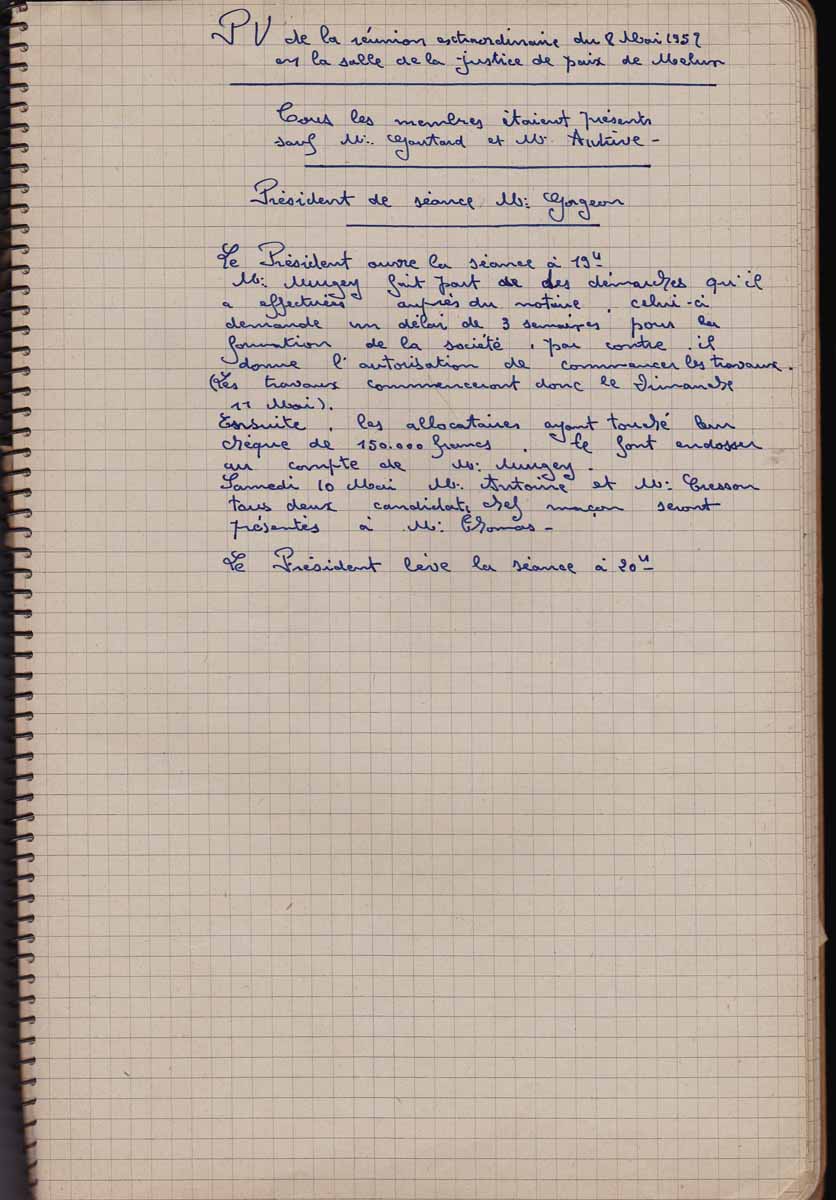 PV de la réunion extraordinaire du 8 Mai 1952
en la salle de la justice de paix de Melun
Tous les membres étaient présents
sauf Mr: Goutard et Mr
Président de séance Mr: Gorgeon
Le Président ouvre la séance à 19H
Mr: Mugey fait part de des démarches qu'il
a effectuées auprès du notaire, celui-ci
demande un délai de 3 semaines pour la
formation de la société, par contre il
donne l'autorisation de commencer les travaux.
(Les travaux commenceront donc le Dimanche
11 Mai).
Ensuite, les allocataires ayant touché leur
chèque de 150.000 francs, le font endosser
au compte de Mr: Mugey.
Samedi 10 Mai Mr. Antoine et Mr: Cresson
tous deux candidats chef maçon seront
présentés à Mr: Thomas-
Le Président lève la séance à 20H